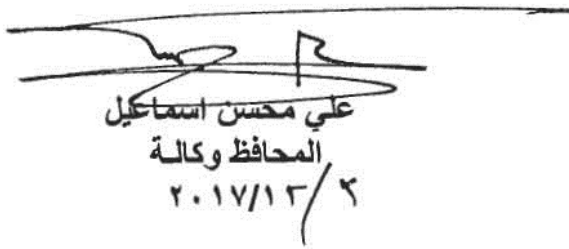 علي محسن اسماعيل
المحافظ وكالة
٢٠١٧/١٢/٣